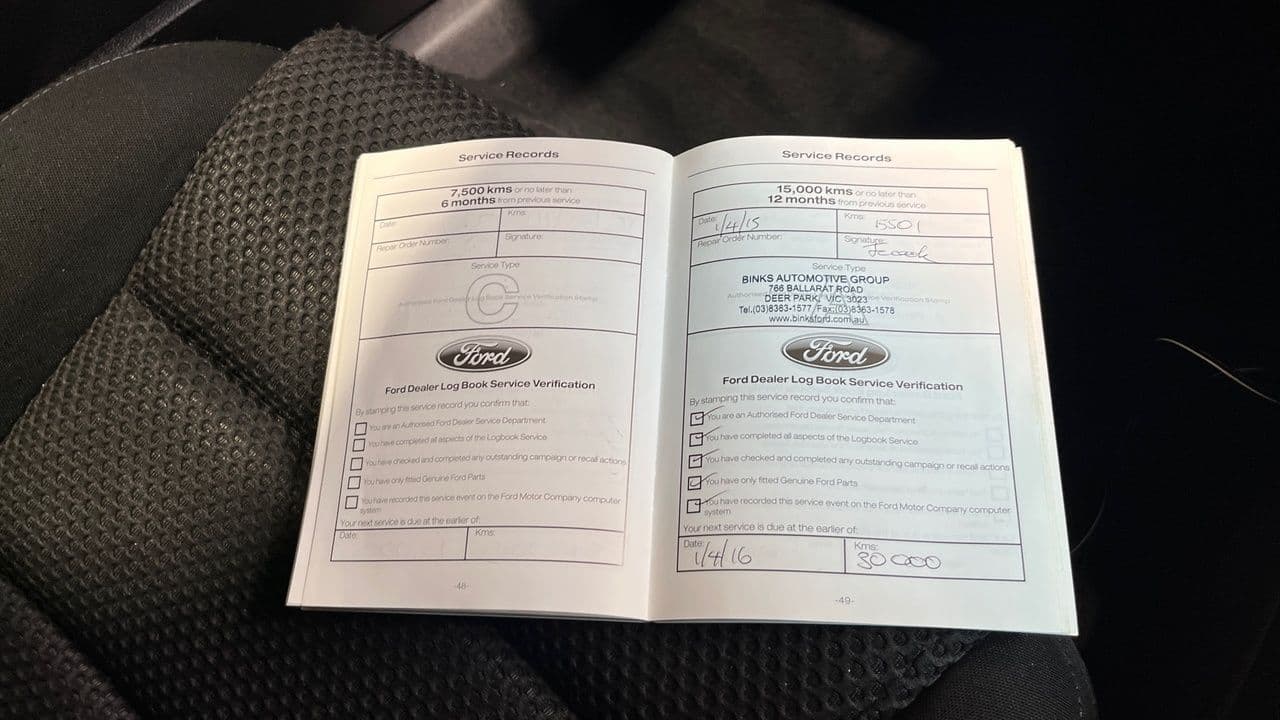 Service Records
7,500 kms or no later than
6 months from previous service
Date:
Kms:
Repair Order Number:
Signature:
Service Type
C
Authorised Ford Dealer Log Book Service Verification Stamp
Ford
Ford Dealer Log Book Service Verification
By stamping this service record you confirm that:
You are an Authorised Ford Dealer Service Department
You have completed all aspects of the Logbook Service
You have checked and completed any outstanding campaign or recall actions
You have only fitted Genuine Ford Parts
You have recorded this service event on the Ford Motor Company computer
system
Your next service is due at the earlier of:
Date:
Kms:
-48-
Service Records
15,000 kms or no later than
12 months from previous service
Date: 1/4/15
Kms: 15501
Repair Order Number:
Signature:
Service Type
BINKS AUTOMOTIVE GROUP
766 BALLARAT ROAD
DEER PARK, VIC 3023
Tel.(03)8363-1577/Fax:(03)8363-1578
www.binksford.com.au
Ford
Ford Dealer Log Book Service Verification
By stamping this service record you confirm that:
You are an Authorised Ford Dealer Service Department
You have completed all aspects of the Logbook Service
You have checked and completed any outstanding campaign or recall actions
You have only fitted Genuine Ford Parts
You have recorded this service event on the Ford Motor Company computer
system
Your next service is due at the earlier of:
Date: 1/4/16
Kms: 30000
-49-